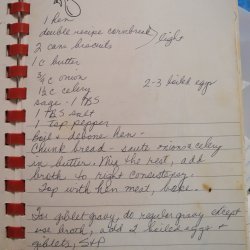 1 hen
double recipe cornbread
2 cans biscuits
light
1 c butter
3/4 c onion
1 1/2 c celery
2-3 boiled eggs
sage - 1 TBS
1 TBS salt
1 tsp pepper
Boil & debone hen -
Chunk bread - saute onion & celery
in butter. Mix the rest, add
broth to right consistency.
Top with hen meat, bake.
For giblet gravy, do regular gravy except
use broth, add 2 boiled eggs &
giblets, S+P